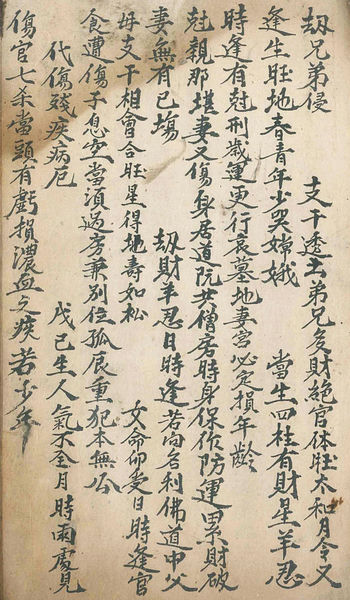 刼兄弟侵　支干透出弟兄多財絕官休旺太和月令又
逢生旺地春青年少哭嫦娥　當生四柱有財星羊忍
時逢有尅刑歲運更行哀墓地妻宮必定損年齡
尅親那堪妻又傷身居道院共僧房時身保你防運累財破
妻無有已塲　刼財羊忍日時逢若向名利佛道中父
母支干相會合旺星得地壽如松　女命卯酉日時逢官
食遭傷子息空當須過房兼別位孤辰重犯本無公
代傷殘疾病厄　戊己生人氣不全月時兩處見
傷官七杀當頭有虧損濃血之疾若少年